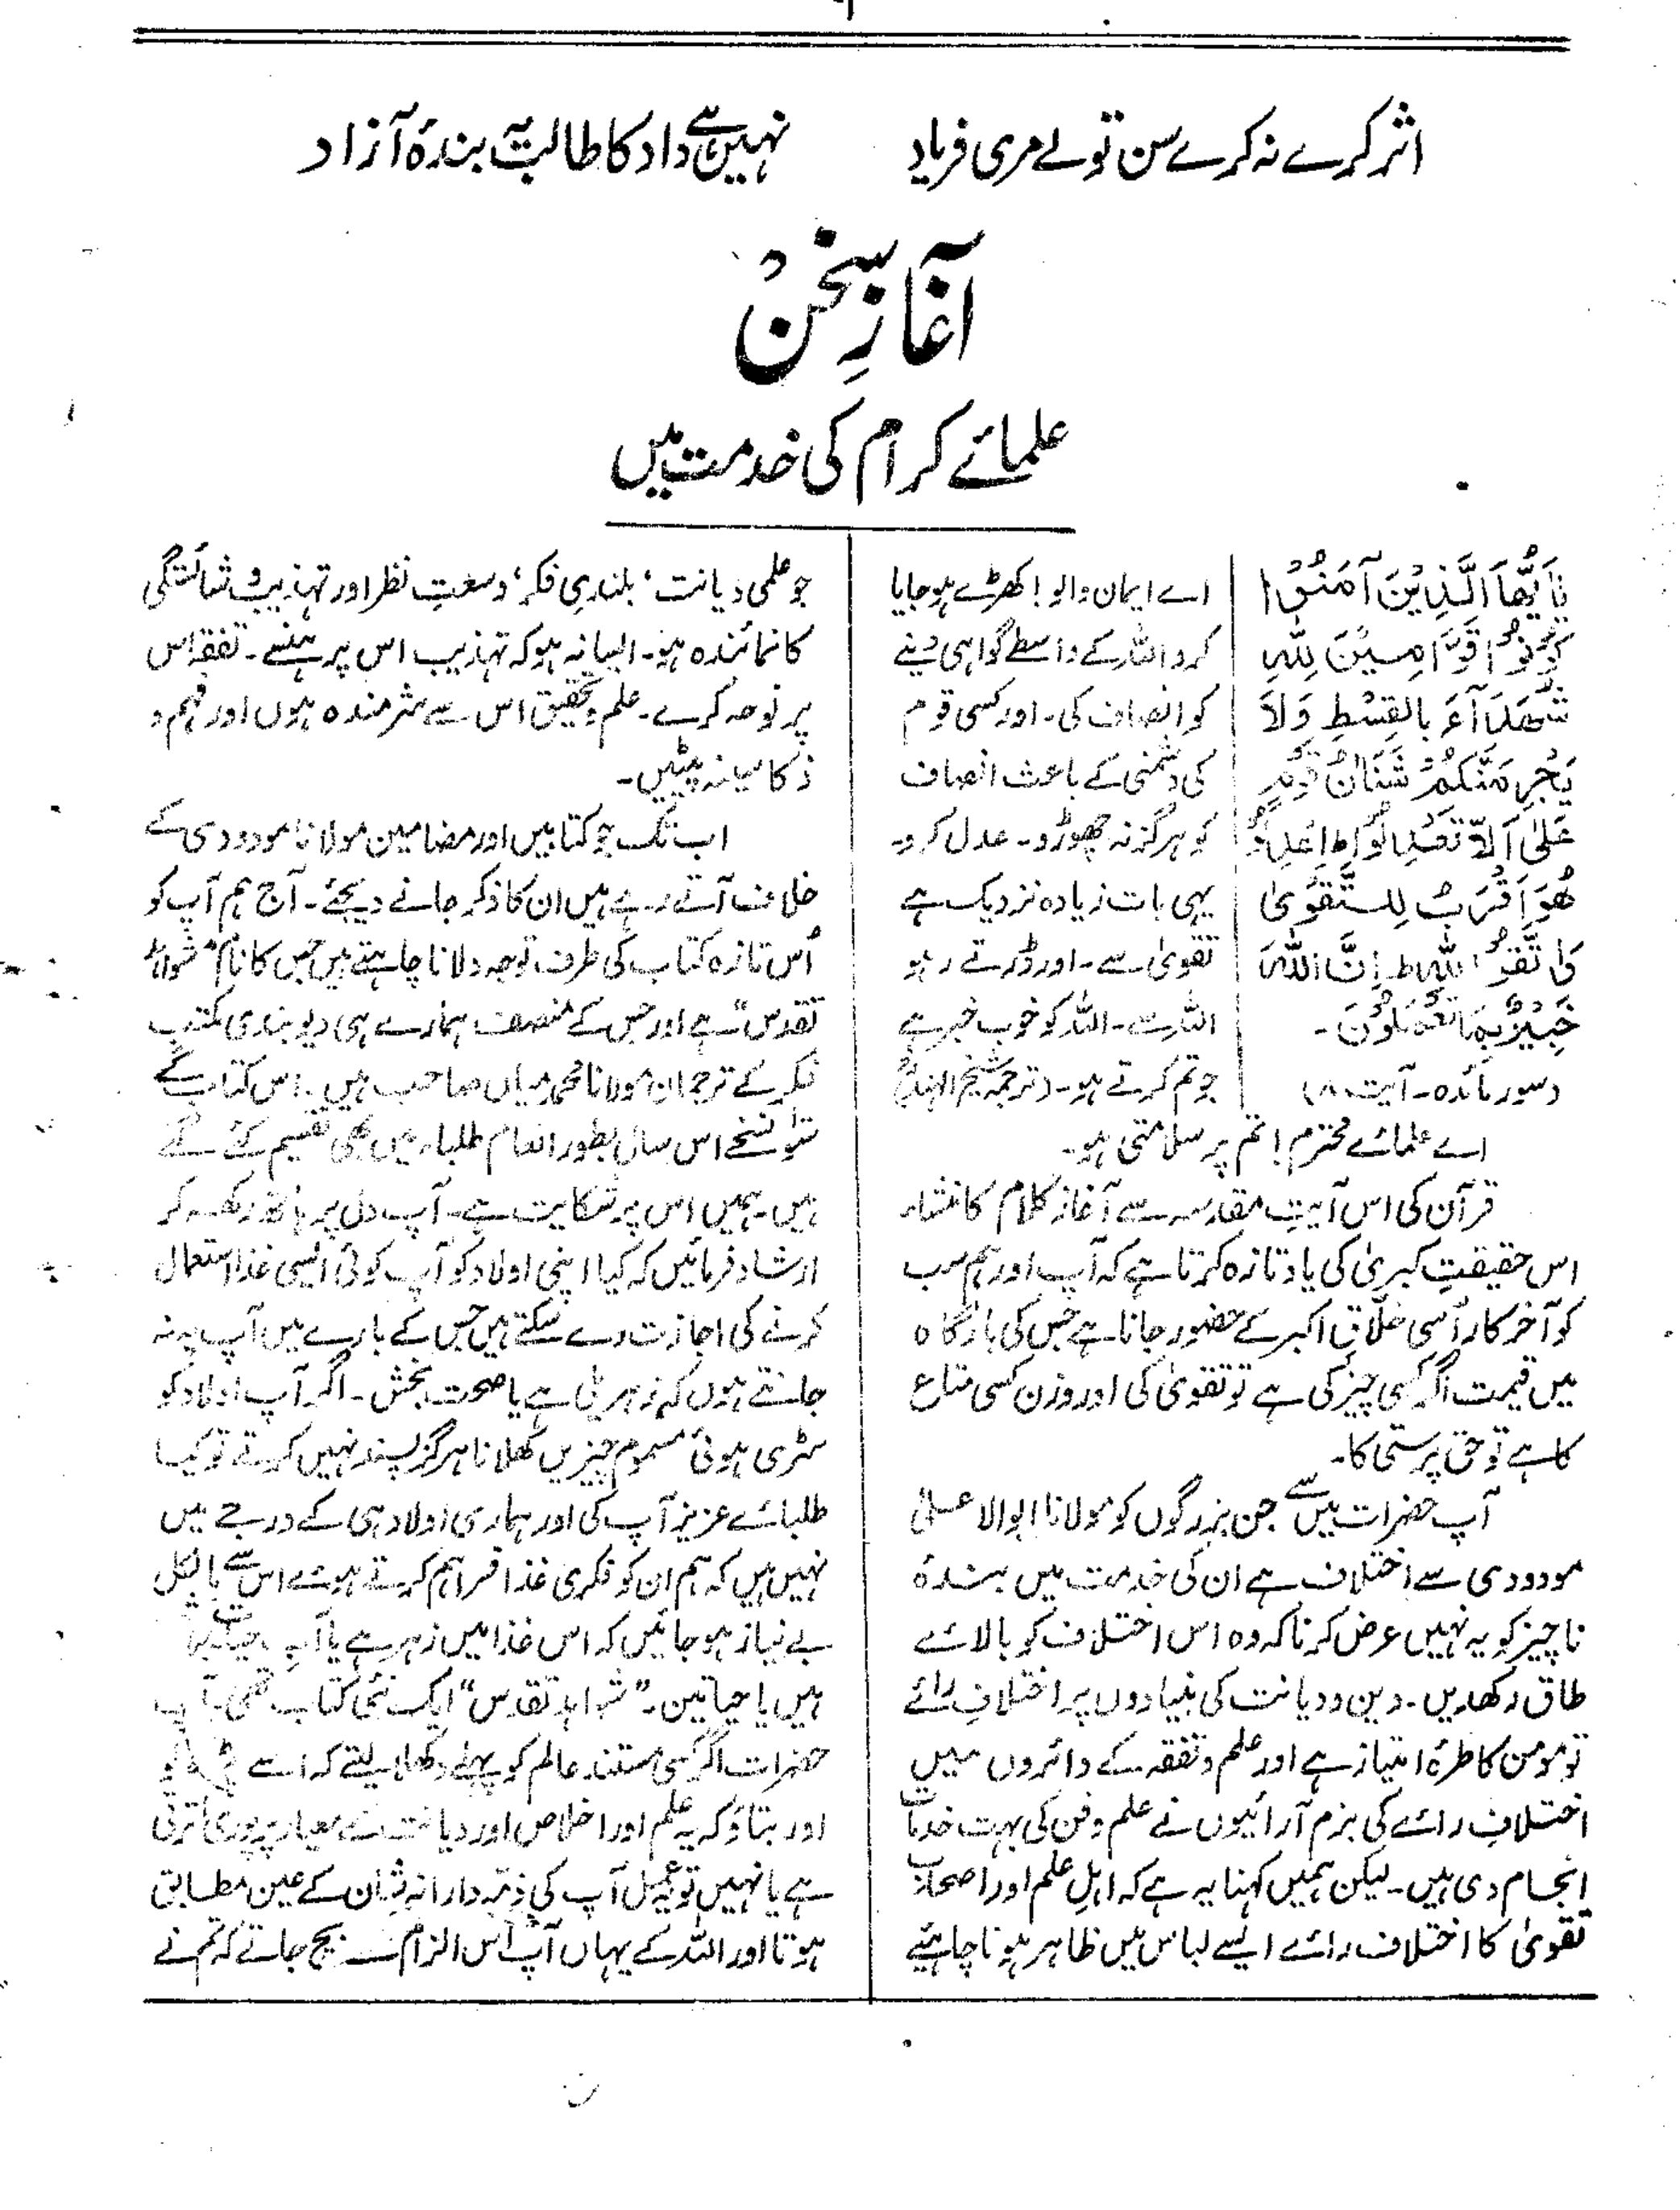 اثر کرے نہ کرے سن تو لے مری فریاد
نہیں ہے داد کا طالب یہ بندۂ آزاد
آغازِ سخن
علمائے کرام کی خدمت میں
یٰۤاَیُّهَا الَّذِیْنَ آمَنُوْا
كُوْنُوْا قَوَّامِیْنَ لِلّٰهِ
شُهَدَآءَ بِالْقِسْطِ وَلَا
یَجْرِمَنَّكُمْ شَنَاٰنُ قَوْمٍ
عَلٰى اَلَّا تَعْدِلُوْا ط اِعْدِلُوْا
هُوَ اَقْرَبُ لِلتَّقْوٰى
وَاتَّقُوا اللّٰهَ ط اِنَّ اللّٰهَ
خَبِیْرٌۢ بِمَا تَعْمَلُوْنَ۔
(سورہ مائدہ۔ آیت ۸)
اے ایمان والو! کھڑے ہو جایا
کرو اللہ کے واسطے گواہی دینے
کو انصاف کی۔ اور کسی قوم
کی دشمنی کے باعث انصاف
کو ہرگز نہ چھوڑو۔ عدل کرو۔
یہی بات زیادہ نزدیک ہے
تقویٰ سے۔ اور ڈرتے رہو
اللہ سے۔ اللہ کو خوب خبر ہے
جو تم کرتے ہو۔ (ترجمہ شیخ الہندؒ)
اے علمائے محترم! تم پر سلامتی ہو۔
قرآن کی اس آیتِ مقدسہ سے آغازِ کلام کا منشاء
اس حقیقتِ کبریٰ کی یاد تازہ کرنا ہے کہ آپ اور ہم سب
کو آخر کار اُسی خلّاقِ اکبر کے حضور جانا ہے جس کی بارگاہ
میں قیمت اگر کسی چیز کی ہے تو تقویٰ کی اور وزن کسی متاع
کا ہے تو حق پرستی کا۔
آپ حضرات میں سے جن بزرگوں کو مولانا ابوالاعلیٰ
مودودی سے اختلاف ہے ان کی خدمت میں بندۂ
ناچیز کو یہ نہیں عرض کرنا کہ وہ اس اختلاف کو بالائے
طاق رکھدیں۔ دین و دیانت کی بنیادوں پر اختلافِ رائے
تو مومن کا طرۂ امتیاز ہے اور علم و تفقہ کے دائروں میں
اختلافِ رائے کی بزم آرائیوں نے علم و فن کی بہت خدمات
انجام دی ہیں۔ لیکن ہمیں کہنا یہ ہے کہ اہلِ علم اور اصحابِ
تقویٰ کا اختلاف رائے ایسے لباس میں ظاہر ہونا چاہیئے
جو علمی دیانت، بلندیِ فکر، وسعتِ نظر اور تہذیب و شائستگی
کا نمائندہ ہو۔ ایسا نہ ہو کہ تہذیب اس پر ہنسے۔ تفقہ اس
پر نوحہ کرے۔ علم و تحقیق اس سے شرمندہ ہوں اور فہم و
ذکا سینہ پیٹیں۔
اب تک جو کتابیں اور مضامین مولانا مودودی کے
خلاف آتے رہے ہیں ان کا ذکر جانے دیجئے۔ آج ہم آپ کو
اُس تازہ کتاب کی طرف توجہ دلانا چاہتے ہیں جس کا نام "شواہدِ
تقدس" ہے اور جس کے مصنف ہمارے ہی دیوبندی مکتبِ
فکر کے ترجمان مولانا محمد میاں صاحب ہیں۔ اس کتاب کے
سَو نسخے اس سال بطور انعام طلباء میں بھی تقسیم کئے گئے
ہیں۔ ہمیں اس پر شکایت ہے۔ آپ دل پر ہاتھ رکھ کر
ارشاد فرمائیں کہ کیا اپنی اولاد کو آپ کوئی ایسی غذا استعمال
کرنے کی اجازت دے سکتے ہیں جس کے بارے میں آپ یہ نہ
جانتے ہوں کہ زہریلی ہے یا صحت بخش۔ اگر آپ اولاد کو
سڑی ہوئی مسموم چیزیں کھلانا ہرگز پسند نہیں کرتے تو کیا
طلبائے عزیز آپ کی اور ہماری اولاد ہی کے درجے میں
نہیں ہیں کہ ہم ان کو فکری غذا فراہم کرتے ہوئے اس سے بالکل
بے نیاز ہو جائیں کہ اس غذا میں زہر ہے یا آبِ حیات
ہیں یا حیاتین۔ "شواہدِ تقدس" ایک نئی کتاب تھی۔ آپ
حضرات اگر کسی مستند عالم کو پہلے دکھا لیتے کہ اسے پڑھو
اور بتاؤ کہ یہ علم اور اخلاص اور دیانت کے معیار پر پوری اترتی
ہے یا نہیں تو یہ عمل آپ کی ذمّہ دارانہ شان کے عین مطابق
ہوتا اور اللہ کے یہاں آپ اس الزام سے بچ جاتے کہ تم نے